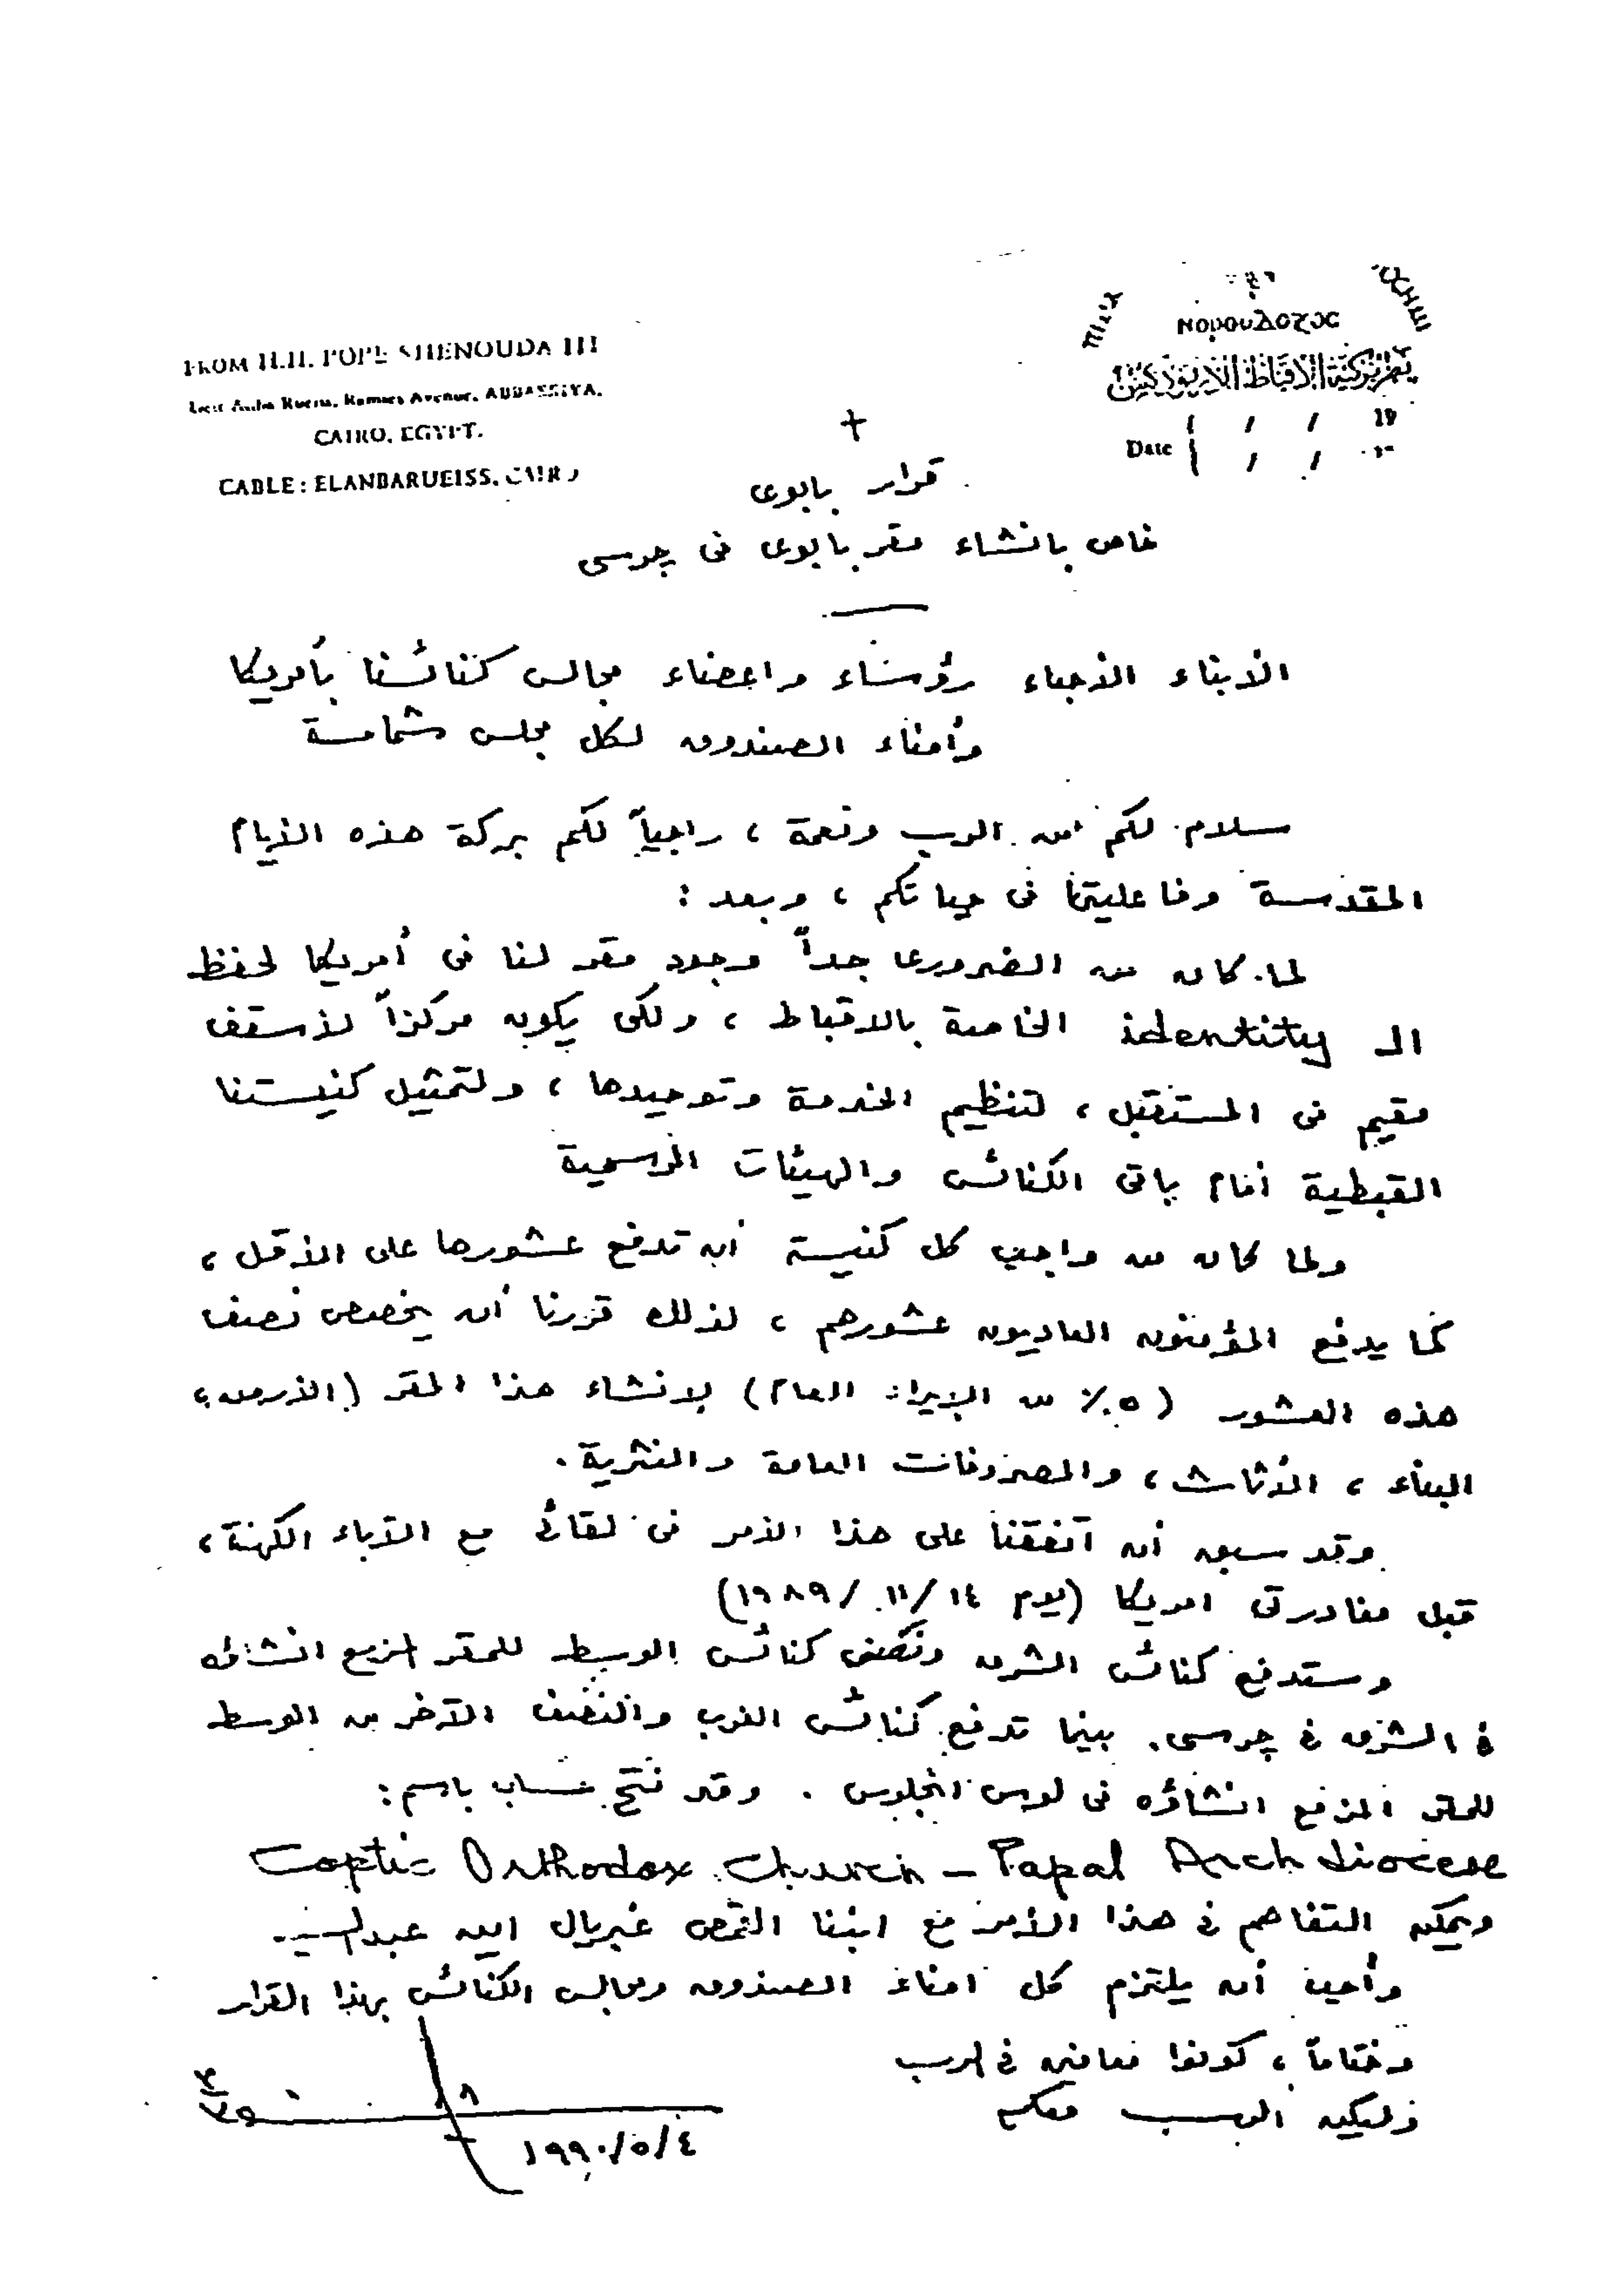 FROM H.H. POPE SHENOUDA III
Anba Rueiss, Ramses Avenue, ABBASSIYA,
CAIRO, EGYPT.
CABLE : ELANBARUEISS, CAIRO
بطريركية الأقباط الأرثوذكس
Date / / 19
+
قرار بابوى
خاص بانشاء مقر بابوى فى چرسى
الأبناء الأحباء رؤساء واعضاء مجالس كنائسنا بأمريكا
وأمناء الصندوق لكل مجلس شمامسة
سلام لكم من الرب ونعمة ، راجياً لكم بركة هذه الأيام
المقدسة وفاعليتها فى حياتكم ، وبعد :
لما كان من الضرورى جداً وجود مقر لنا فى أمريكا لحفظ
الـ identity الخاصة بالاقباط ، ولكى يكون مركزاً لأسقف
مقيم فى المستقبل ، لتنظيم الخدمة وتوحيدها ، ولتمثيل كنيستنا
القبطية أمام باقى الكنائس والهيئات الرسمية
ولما كان من واجب كل كنيسة أن تدفع عشورها على الأقل ،
كما يدفع المؤمنون العاديون عشورهم ، لذلك قررنا أن يخصص نصف
هذه العشور ( ٥٪ من الإيراد العام) لإنشاء هذا المقر (الأرض ،
البناء ، الأثاث ، والمصروفات العامة والنثرية .
وقد سبق أن اتفقنا على هذا الأمر فى لقائى مع الآباء الكهنة ،
قبل مغادرتى امريكا (يوم ١٤ /١١ /١٩٨٩)
وستدفع كنائس الشرق ونصف كنائس الوسط للمقر المزمع انشاؤه
فى الشرق فى چرسى . بينما تدفع كنائس الغرب والنصف الآخر من الوسط
للمقر المزمع انشاؤه فى لوس انجلوس . وقد فتح حساب باسم :
Coptic Orthodox Church – Papal Archdiocese
ويمكن التفاهم فى هذا الأمر مع ابننا القمص غبريال امين عبد السيد .
وأحب أن يلتزم كل امناء الصندوق ومجالس الكنائس بهذا القرار
وختاماً ، كونوا معافين فى الرب
وليكن الرب معكم
١٩٩٠/٥/٤